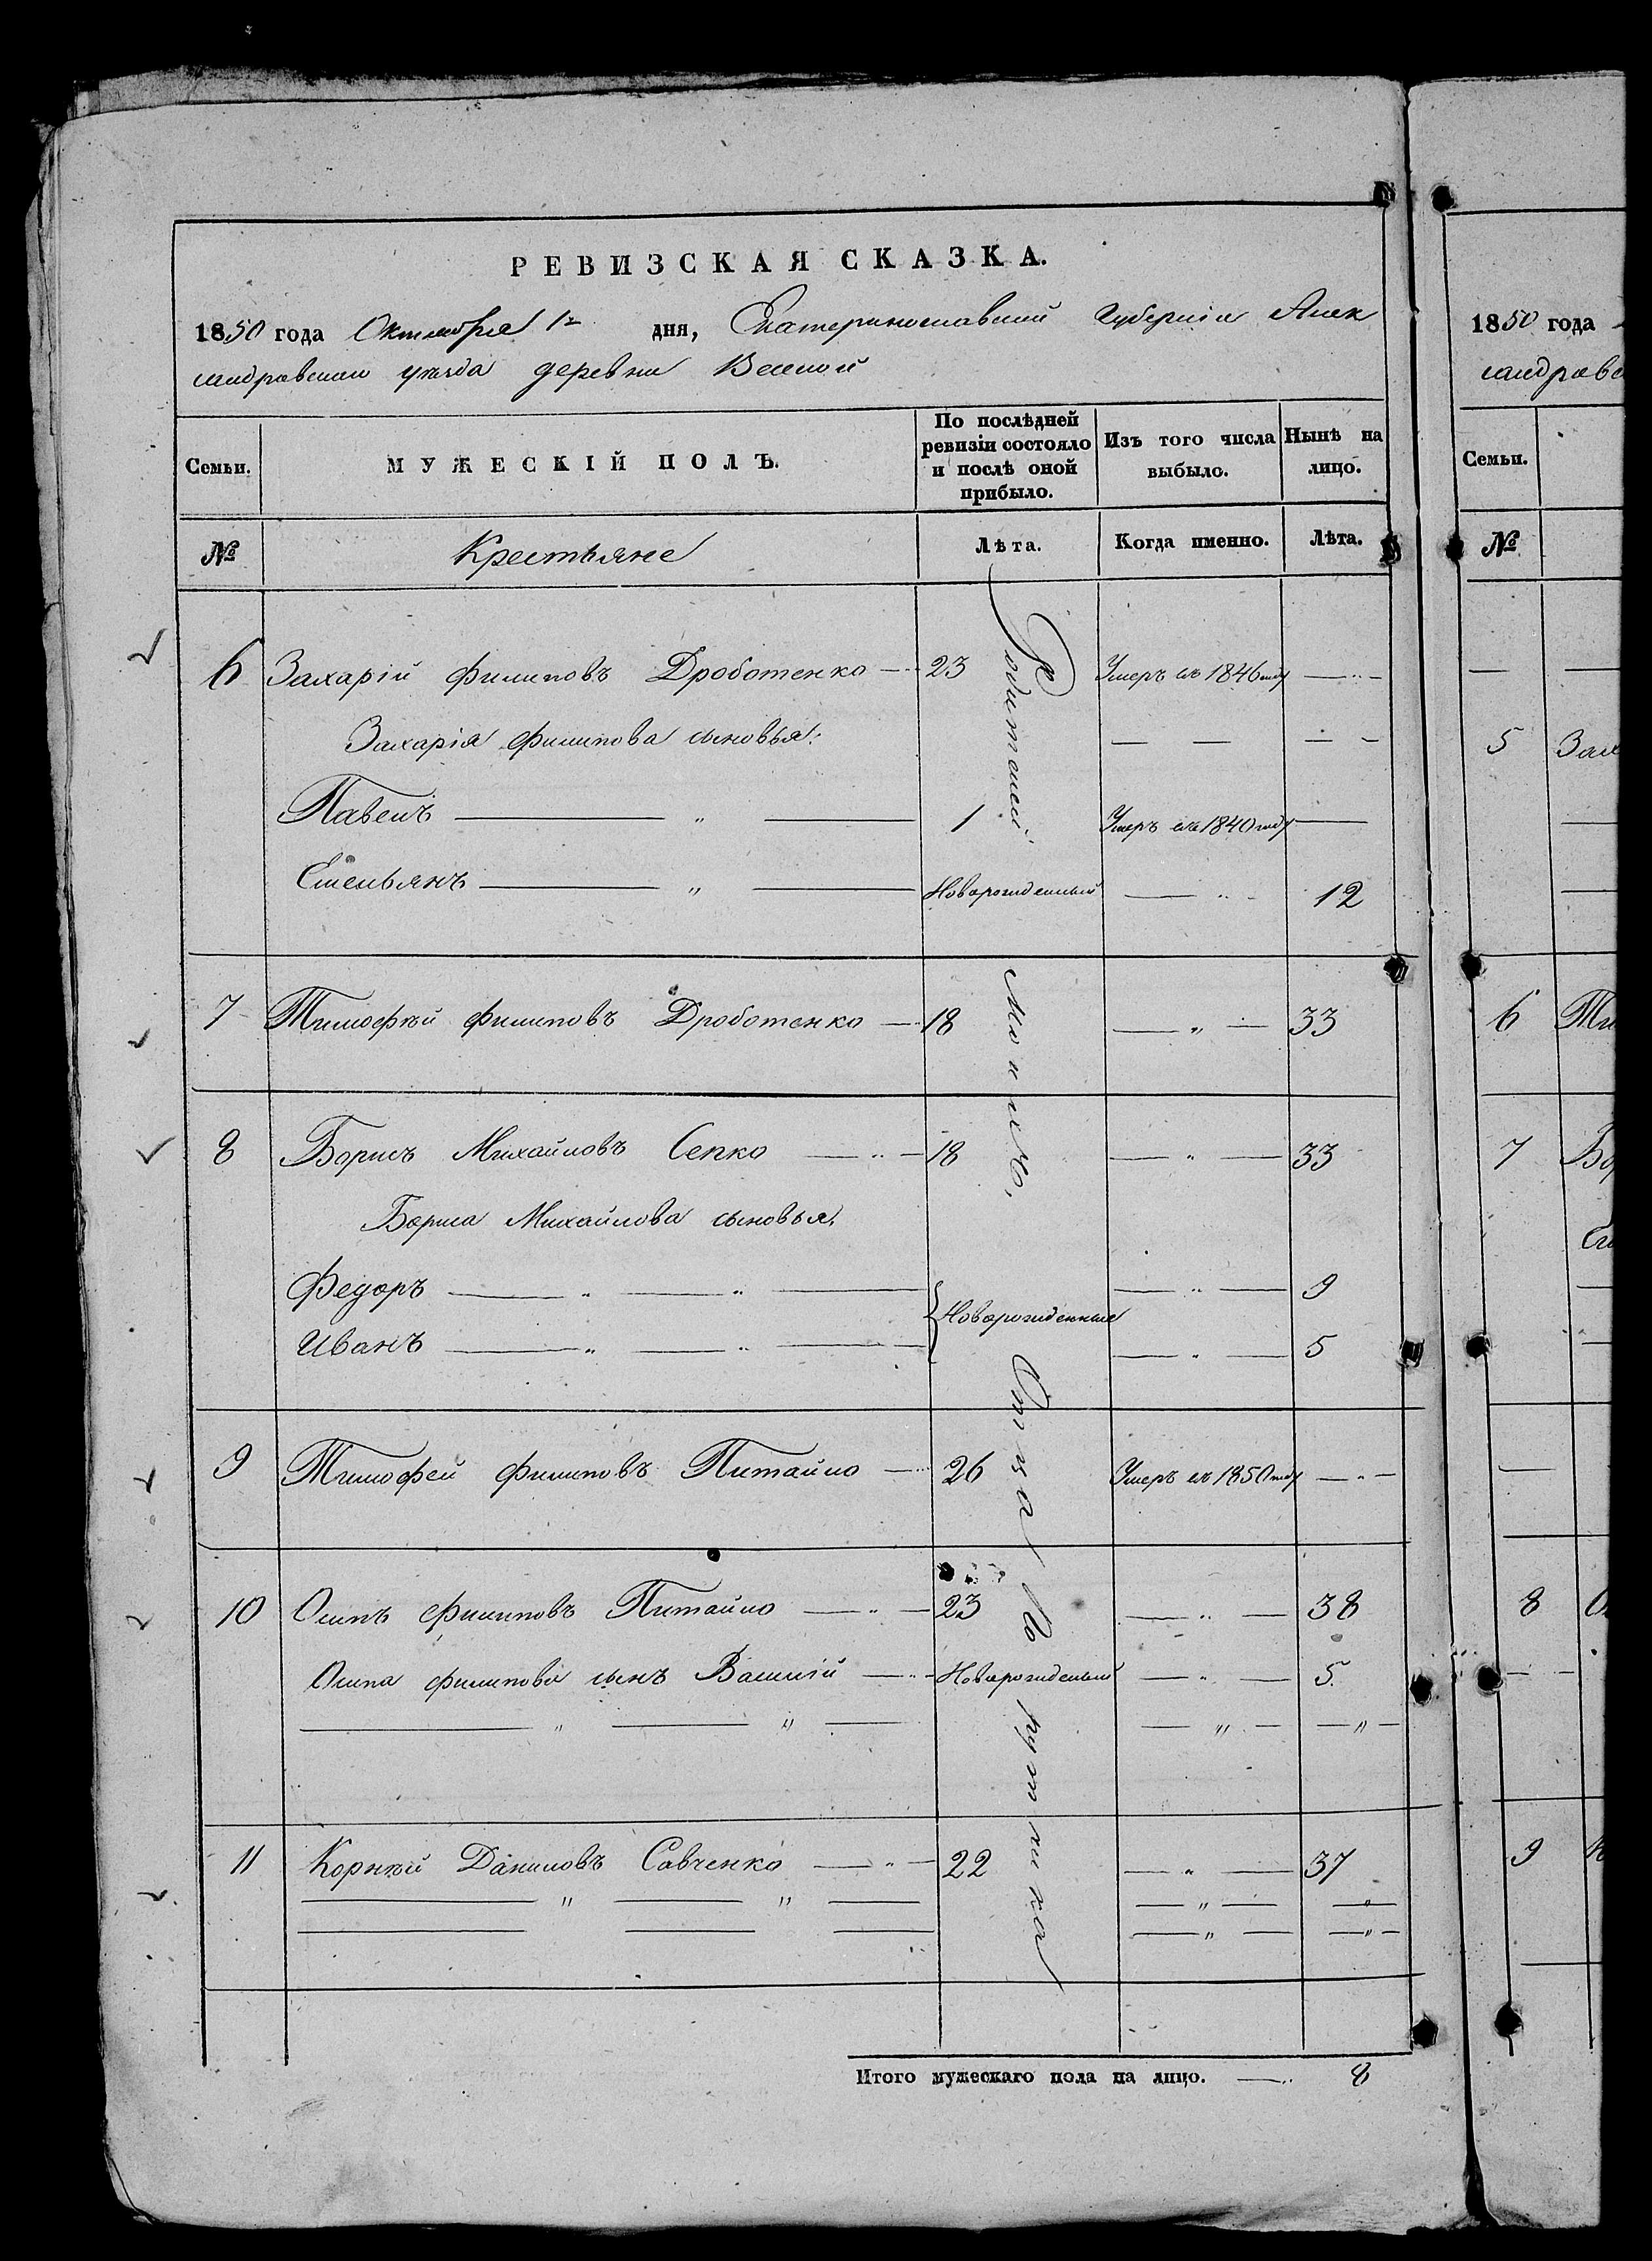 РЕВИЗСКАЯ СКАЗКА.
1850 года Октября 1го дня, Екатеринославской Губерніи Алек
сандровскаго уѣзда деревни Веселой
Семьи. МУЖЕСКІЙ ПОЛЪ. По послѣдней ревизіи состояло и послѣ оной прибыло. Изъ того числа выбыло. Нынѣ на лицо.
№ Крестьяне Лѣта. Когда именно. Лѣта.
6 Захарій Филиповъ Дроботенко — 23 Умеръ въ 1846 году —
Захарія Филипова сыновья:
Павелъ — " — 1 Умеръ въ 1840 году —
Емельянъ — " — Новорожденный — 12
7 Тимофѣй Филиповъ Дроботенко — 18 — " — 33
8 Борисъ Михайловъ Сепко — 18 — " — 33
Бориса Михайлова сыновья,
Федоръ — " — " — Новорожденные — " — 9
Иванъ — " — " — — " — 5
9 Тимофей Филиповъ Питайло — 26 Умеръ въ 1850 году —
10 Осипъ Филиповъ Питайло — 23 — " — 38
Осипа Филипова сынъ Василій — Новорожденный — " — 5.
— " — " — — " — — " —
11 Корнѣй Даниловъ Савченко — 22 — " — 37
— " — " — — " — "
— — — — " — — " —
Итого мужескаго пола на лицо. — 8
1850 года
сандровс
Семьи.
№
5 Зах
6 Ти
7 Бо
8 О
9 К